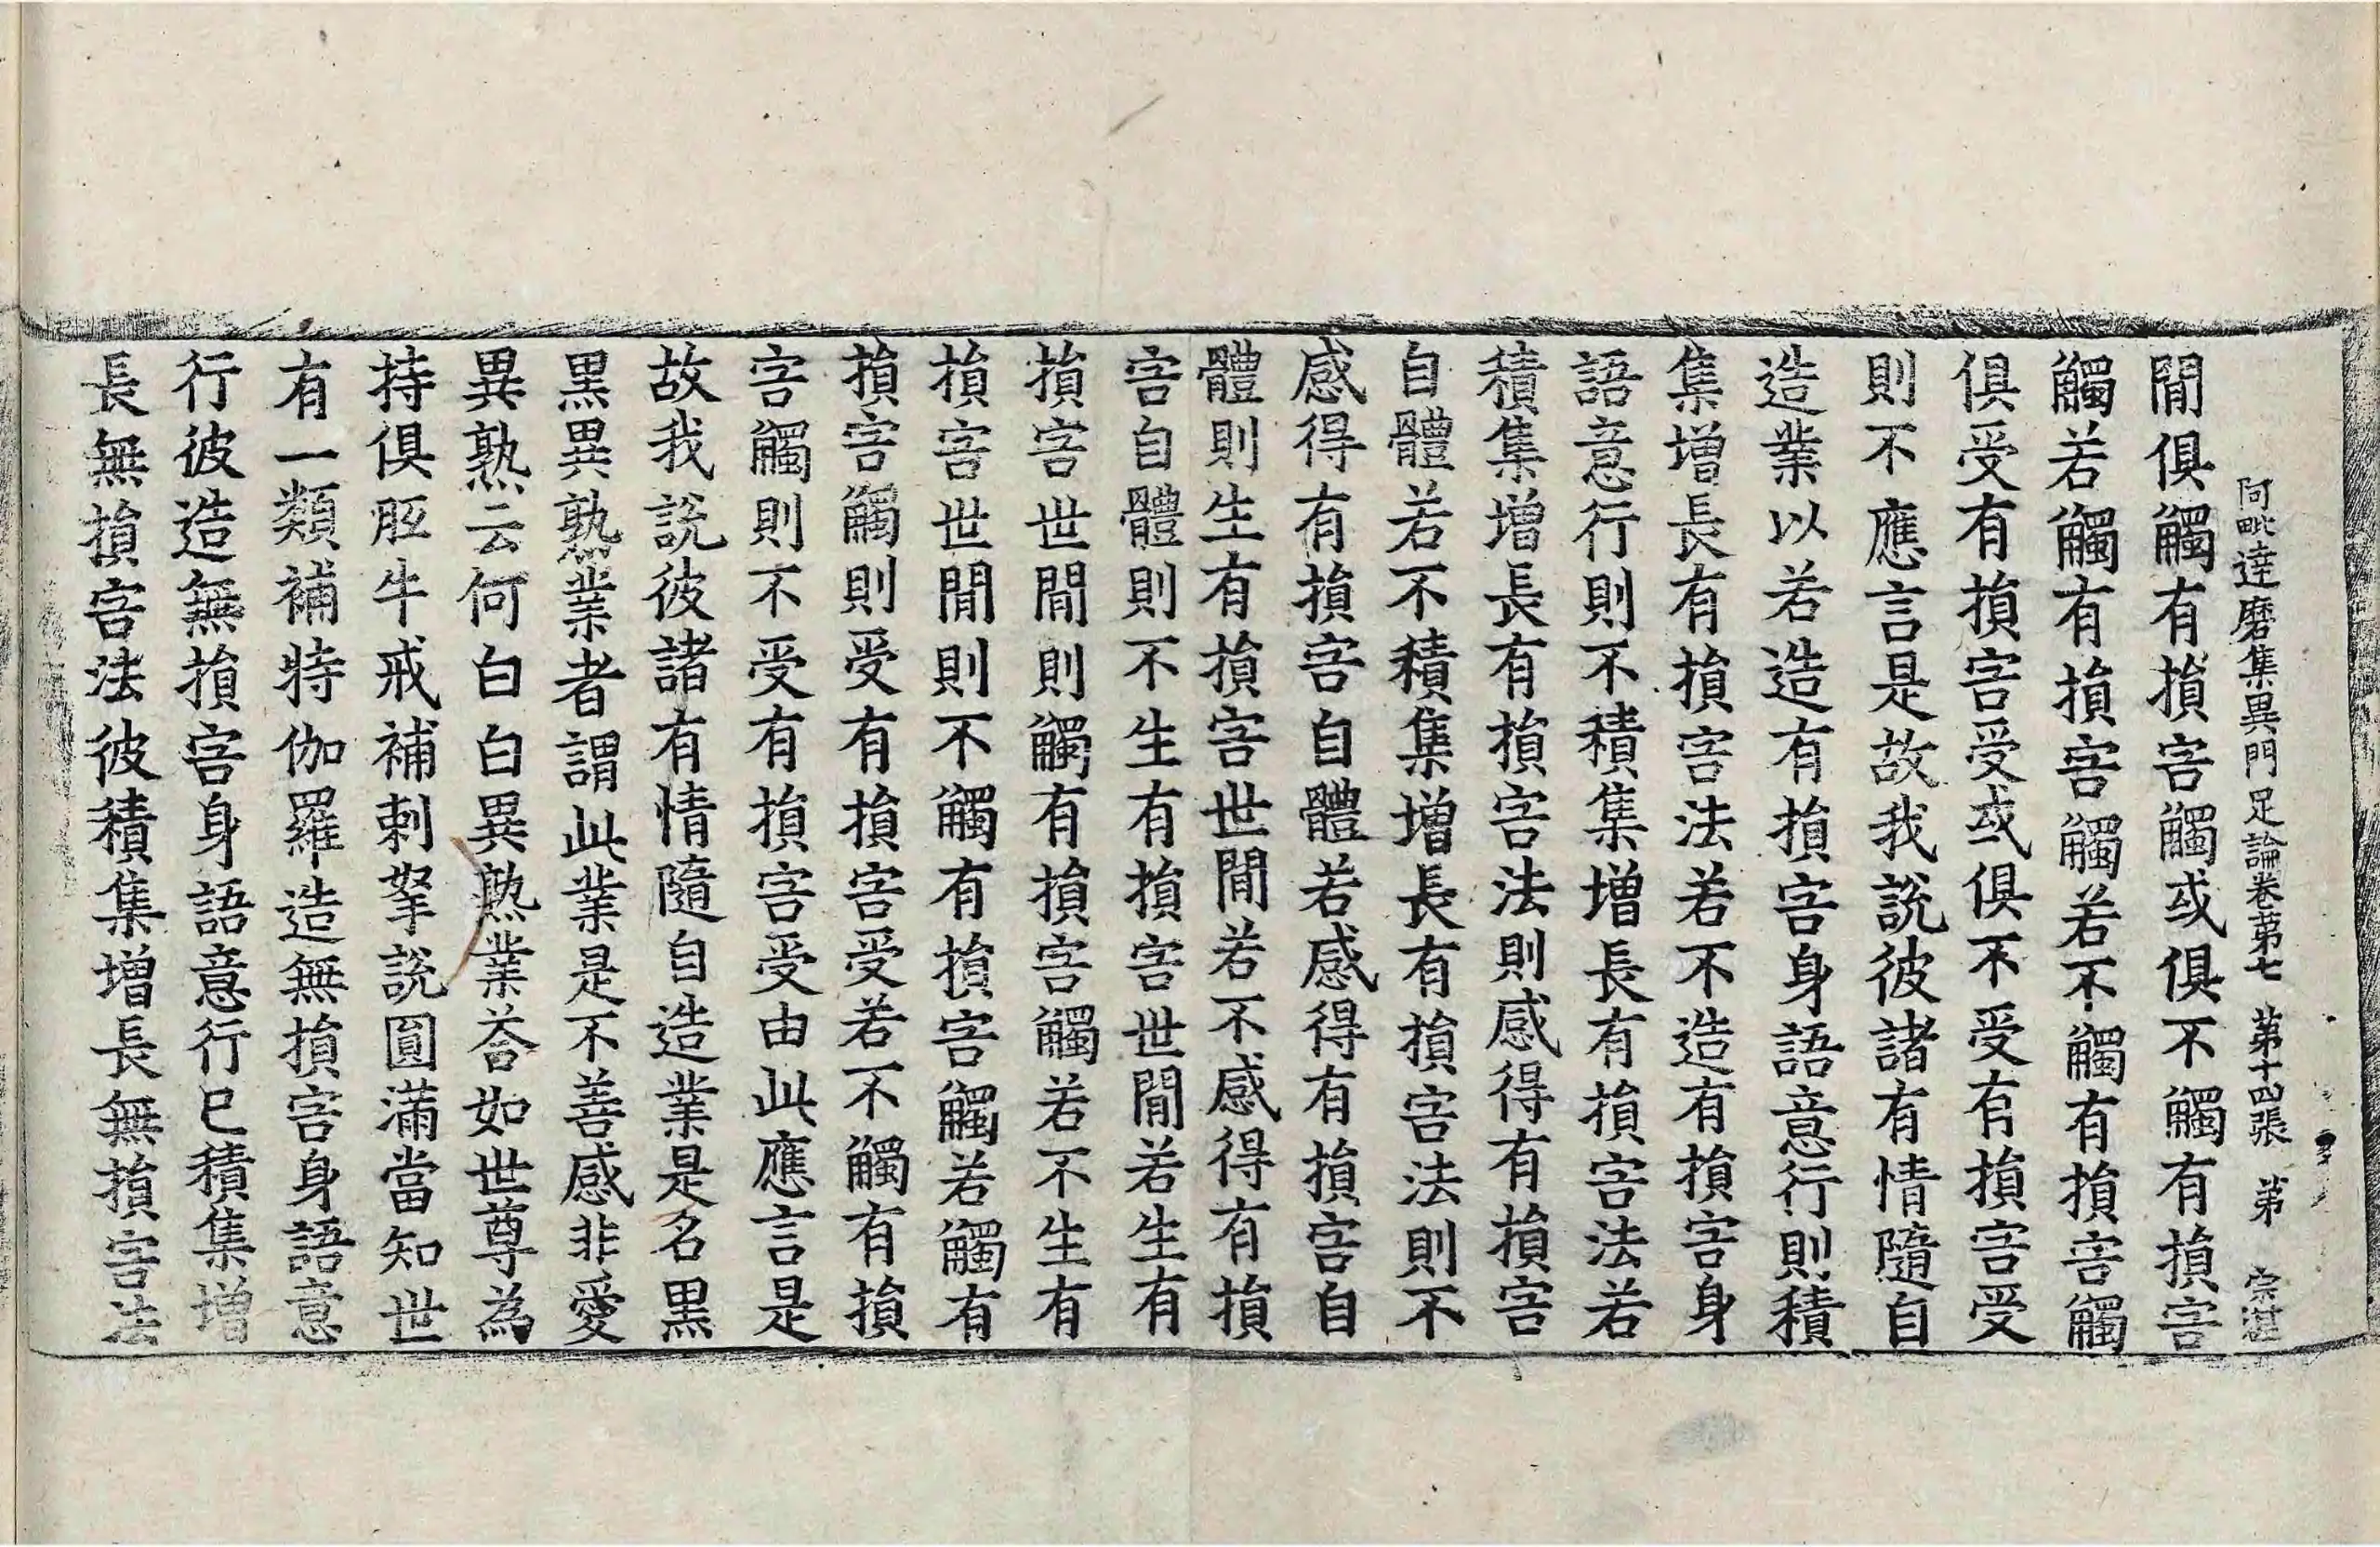 阿毗達磨集異門足論卷苐七 苐十四張 苐 宗湛
閒俱觸有損害觸或俱不觸有損害
觸若觸有損害觸若不觸有損害觸
俱受有損害受或俱不受有損害受
則不應言是故我說彼諸有情隨自
造業以若造有損害身語意行則積
集增長有損害法若不造有損害身
語意行則不積集增長有損害法若
積集增長有損害法則感得有損害
自體若不積集增長有損害法則不
感得有損害自體若感得有損害自
體則生有損害世閒若不感得有損
害自體則不生有損害世閒若生有
損害世閒則觸有損害觸若不生有
損害世閒則不觸有損害觸若觸有
損害觸則受有損害受若不觸有損
害觸則不受有損害受由此應言是
故我說彼諸有情隨自造業是名黑
黑異熟業者謂此業是不善感非愛
異熟云何白白異熟業荅如世尊為
持俱胝牛戒補剌拏說圓滿當知世
有一類補特伽羅造無損害身語意
行彼造無損害身語意行已積集增
長無損害法彼積集增長無損害法